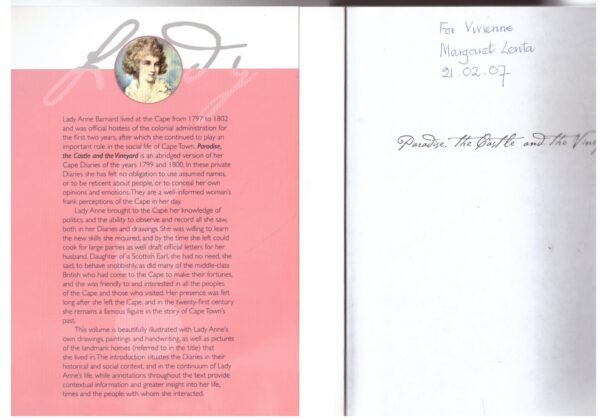 Lady
Lady Anne Barnard lived at the Cape from 1797 to 1802
and was official hostess of the colonial administration for
the first two years, after which she continued to play an
important role in the social life of Cape Town. Paradise,
the Castle and the Vineyard is an abridged version of her
Cape Diaries of the years 1799 and 1800. In these private
Diaries she has felt no obligation to use assumed names,
or to be reticent about people, or to conceal her own
opinions and emotions. They are a well-informed woman's
frank perceptions of the Cape in her day.
Lady Anne brought to the Cape her knowledge of
politics, and the ability to observe and record all she saw,
both in her Diaries and drawings. She was willing to learn
the new skills she required, and by the time she left could
cook for large parties as well draft official letters for her
husband. Daughter of a Scottish Earl, she had no need, she
said, to behave snobbishly, as did many of the middle-class
British who had come to the Cape to make their fortunes,
and she was friendly to and interested in all the peoples
of the Cape and those who visited. Her presence was felt
long after she left the Cape, and in the twenty-first century
she remains a famous figure in the story of Cape Town's
past.
This volume is beautifully illustrated with Lady Anne's
own drawings, paintings and handwriting, as well as pictures
of the landmark homes (referred to in the title) that
she lived in. The introduction situates the Diaries in their
historical and social context, and in the continuum of Lady
Anne's life, while annotations throughout the text provide
contextual information and greater insight into her life,
times and the people with whom she interacted.
For Vivienne
Margaret Lenta
21.02.07
Paradise, the Castle and the Viney